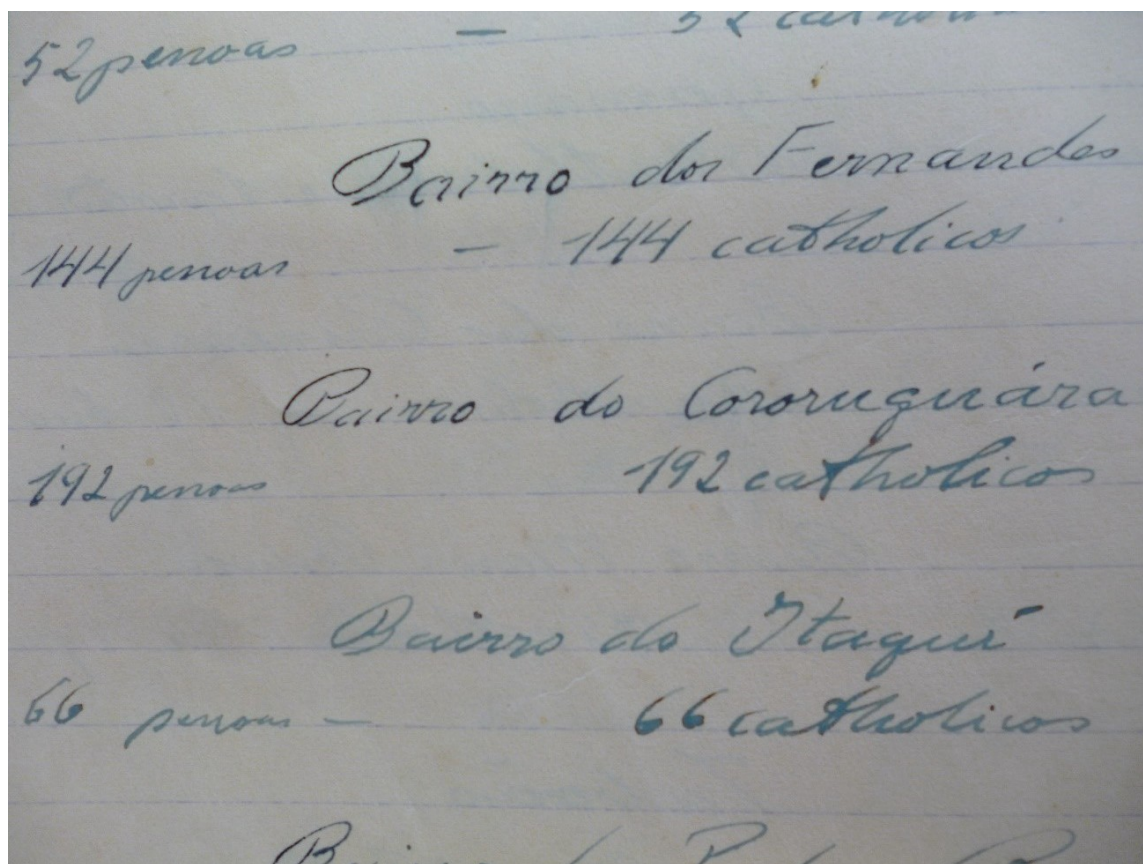 52 pessoas — 52 catholicos
Bairro dos Fernandes
144 pessoas — 144 catholicos
Bairro do Cororuguára
192 pessoas 192 catholicos
Bairro do Itaquí
66 pessoas — 66 catholicos
Bairro